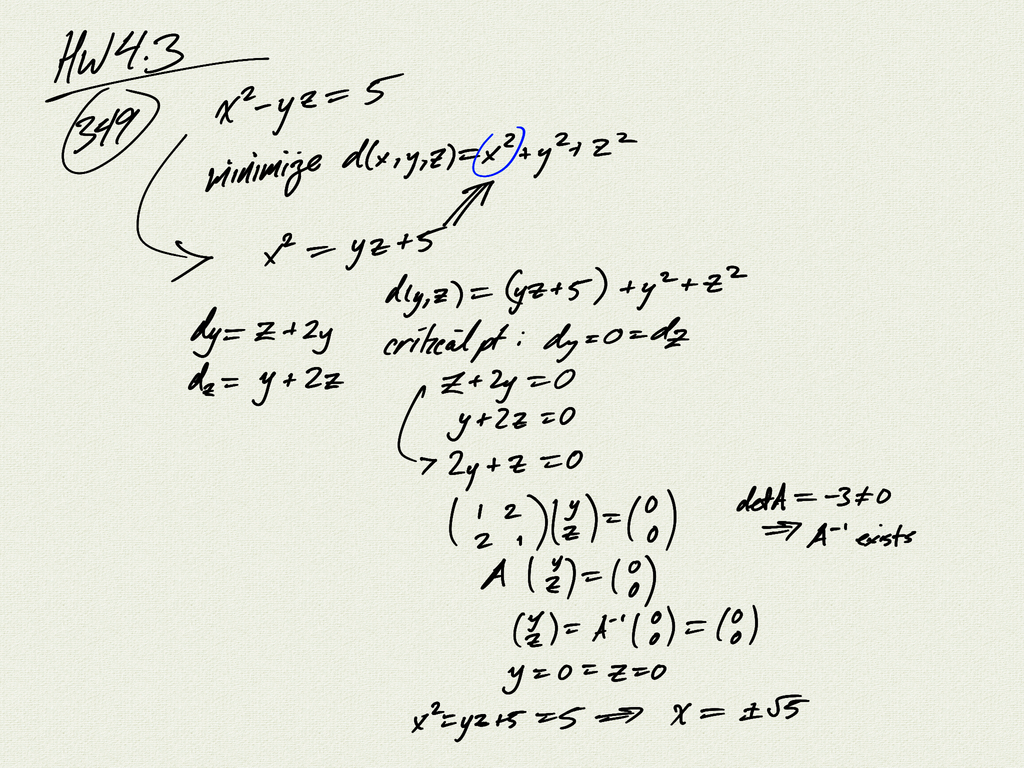 HW4.3
349
x² - yz = 5
minimize d(x,y,z) = x² + y² + z²
x² = yz + 5
d(y,z) = (yz+5) + y² + z²
dy = z + 2y
critical pt : dy = 0 = dz
dz = y + 2z
z + 2y = 0
y + 2z = 0
2y + z = 0
(1 2; 2 1)(y; z) = (0; 0)
detA = -3 ≠ 0
⇒ A⁻¹ exists
A (y; z) = (0; 0)
(y; z) = A⁻¹(0; 0) = (0; 0)
y = 0 = z = 0
x² = yz+5 = 5 ⇒ x = ±√5